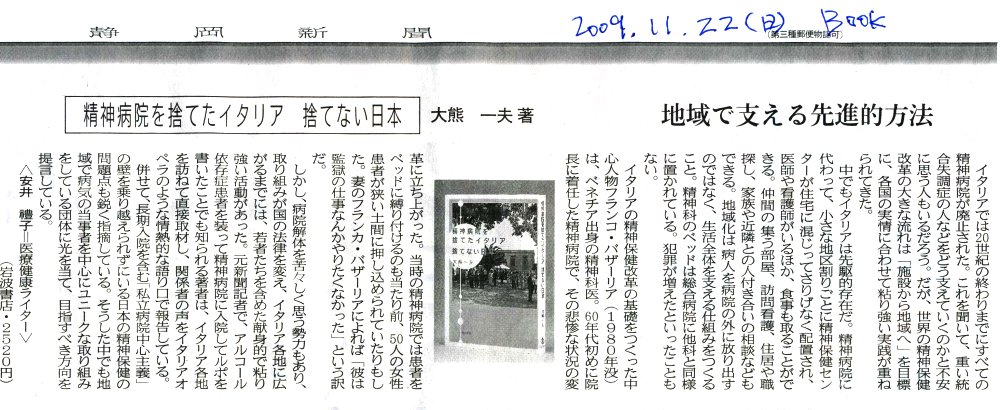 静岡新聞
2009.11.22(日) Book
(第三種郵便物認可)
地域で支える先進的方法
精神病院を捨てたイタリア 捨てない日本
大熊 一夫 著
イタリアでは20世紀の終わりまでにすべての
精神病院が廃止された。これを聞いて、重い統
合失調症の人などをどう支えていくのかと不安
に思う人もいるだろう。だが、世界の精神保健
改革の大きな流れは「施設から地域へ」を目標
に、各国の実情に合わせて粘り強い実践が重ね
られてきた。
中でもイタリアは先駆的存在だ。精神病院に
代わって、小さな地区割りごとに精神保健セン
ターが住宅に混じってさりげなく配置され、
医師や看護師がいるほか、食事も取ることがで
きる。仲間の集う部屋、訪問看護、住居や職
探し、家族や近隣との人付き合いの相談なども
できる。地域化は病人を病院の外に放り出す
のではなく、生活全体を支える仕組みをつくる
こと。精神科のベッドは総合病院に他科と同様
に置かれている。犯罪が増えたといったことも
ない。
イタリアの精神保健改革の基礎をつくった中
心人物フランコ・バザーリア(1980年没)
は、ベネチア出身の精神科医。60年代初めに院
長に着任した精神病院で、その悲惨な状況の変
革に立ち上がった。当時の精神病院では患者を
ベッドに縛り付けるのも当たり前、50人の女性
患者が狭い土間に押し込められていたりもし
た。妻のフランカ・バザーリアによれば「彼は
監獄の仕事なんかやりたくなかった」という訳
だ。
しかし、病院解体を苦々しく思う勢力もあり、
取り組みが国の法律を変え、イタリア各地に広
がるまでには、若者たちを含めた献身的で粘り
強い活動があった。元新聞記者で、アルコール
依存症患者を装って精神病院に入院してルポを
書いたことでも知られる著者は、イタリア各地
を訪ねて直接取材し、関係者の声をイタリアオ
ペラのような情熱的な語り口で報告している。
併せて、長期入院を含む「私立病院中心主義」
の壁を乗り越えられずにいる日本の精神保健の
問題点も鋭く指摘している。そうした中でも地
域で病気の当事者を中心にユニークな取り組み
をしている団体に光を当て、目指すべき方向を
提言している。
〈安井 禮子=医療健康ライター〉
(岩波書店・2520円)
精神病院を
捨てたイタリア
捨てない日本